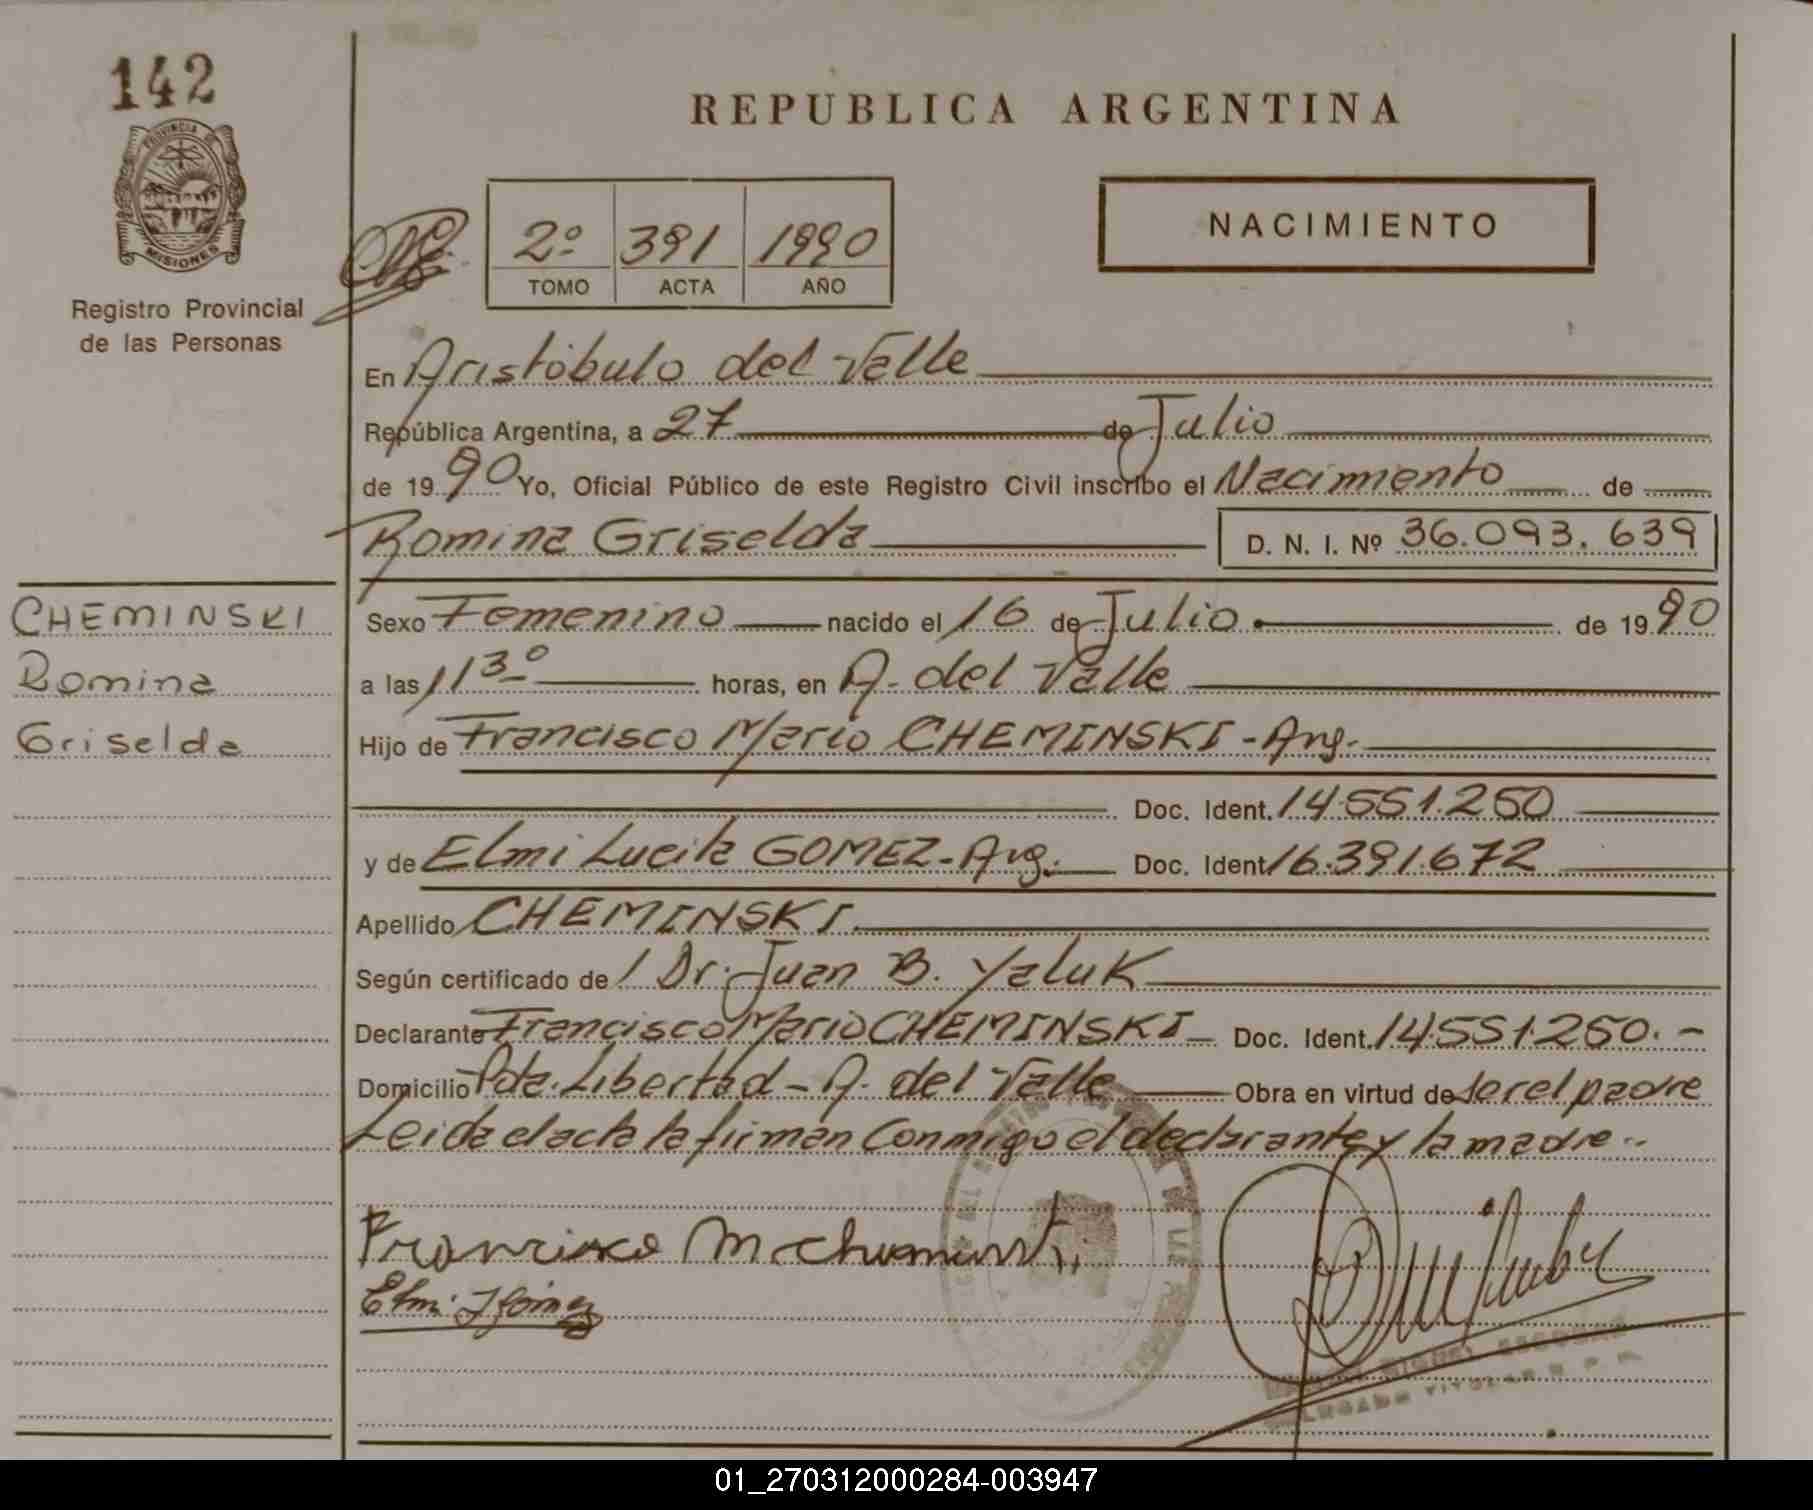 142
PROVINCIA DE
MISIONES
Registro Provincial
de las Personas
REPUBLICA ARGENTINA
NACIMIENTO
2º 391 1990
TOMO ACTA AÑO
En Aristóbulo del Valle
República Argentina, a 27 de Julio
de 19 90 Yo, Oficial Público de este Registro Civil inscribo el Nacimiento de
Romina Griselda D. N. I. Nº 36.093.639
CHEMINSKI
Romina
Griselda
Sexo Femenino nacido el 16 de Julio de 19 90
a las 11 30 horas, en A. del Valle
Hijo de Francisco Mario CHEMINSKI - Arg.
Doc. Ident. 14.551.250
y de Elmi Lucila GOMEZ - Arg. Doc. Ident 16.391.672
Apellido CHEMINSKI
Según certificado de Dr. Juan B. Yaluk
Declarante Francisco Mario CHEMINSKI Doc. Ident. 14.551.250.-
Domicilio Pda. Libertad - A. del Valle Obra en virtud de ser el padre
Leida el acta la firman conmigo el declarante y la madre..
Francisco M.
Elmi
01_270312000284-003947